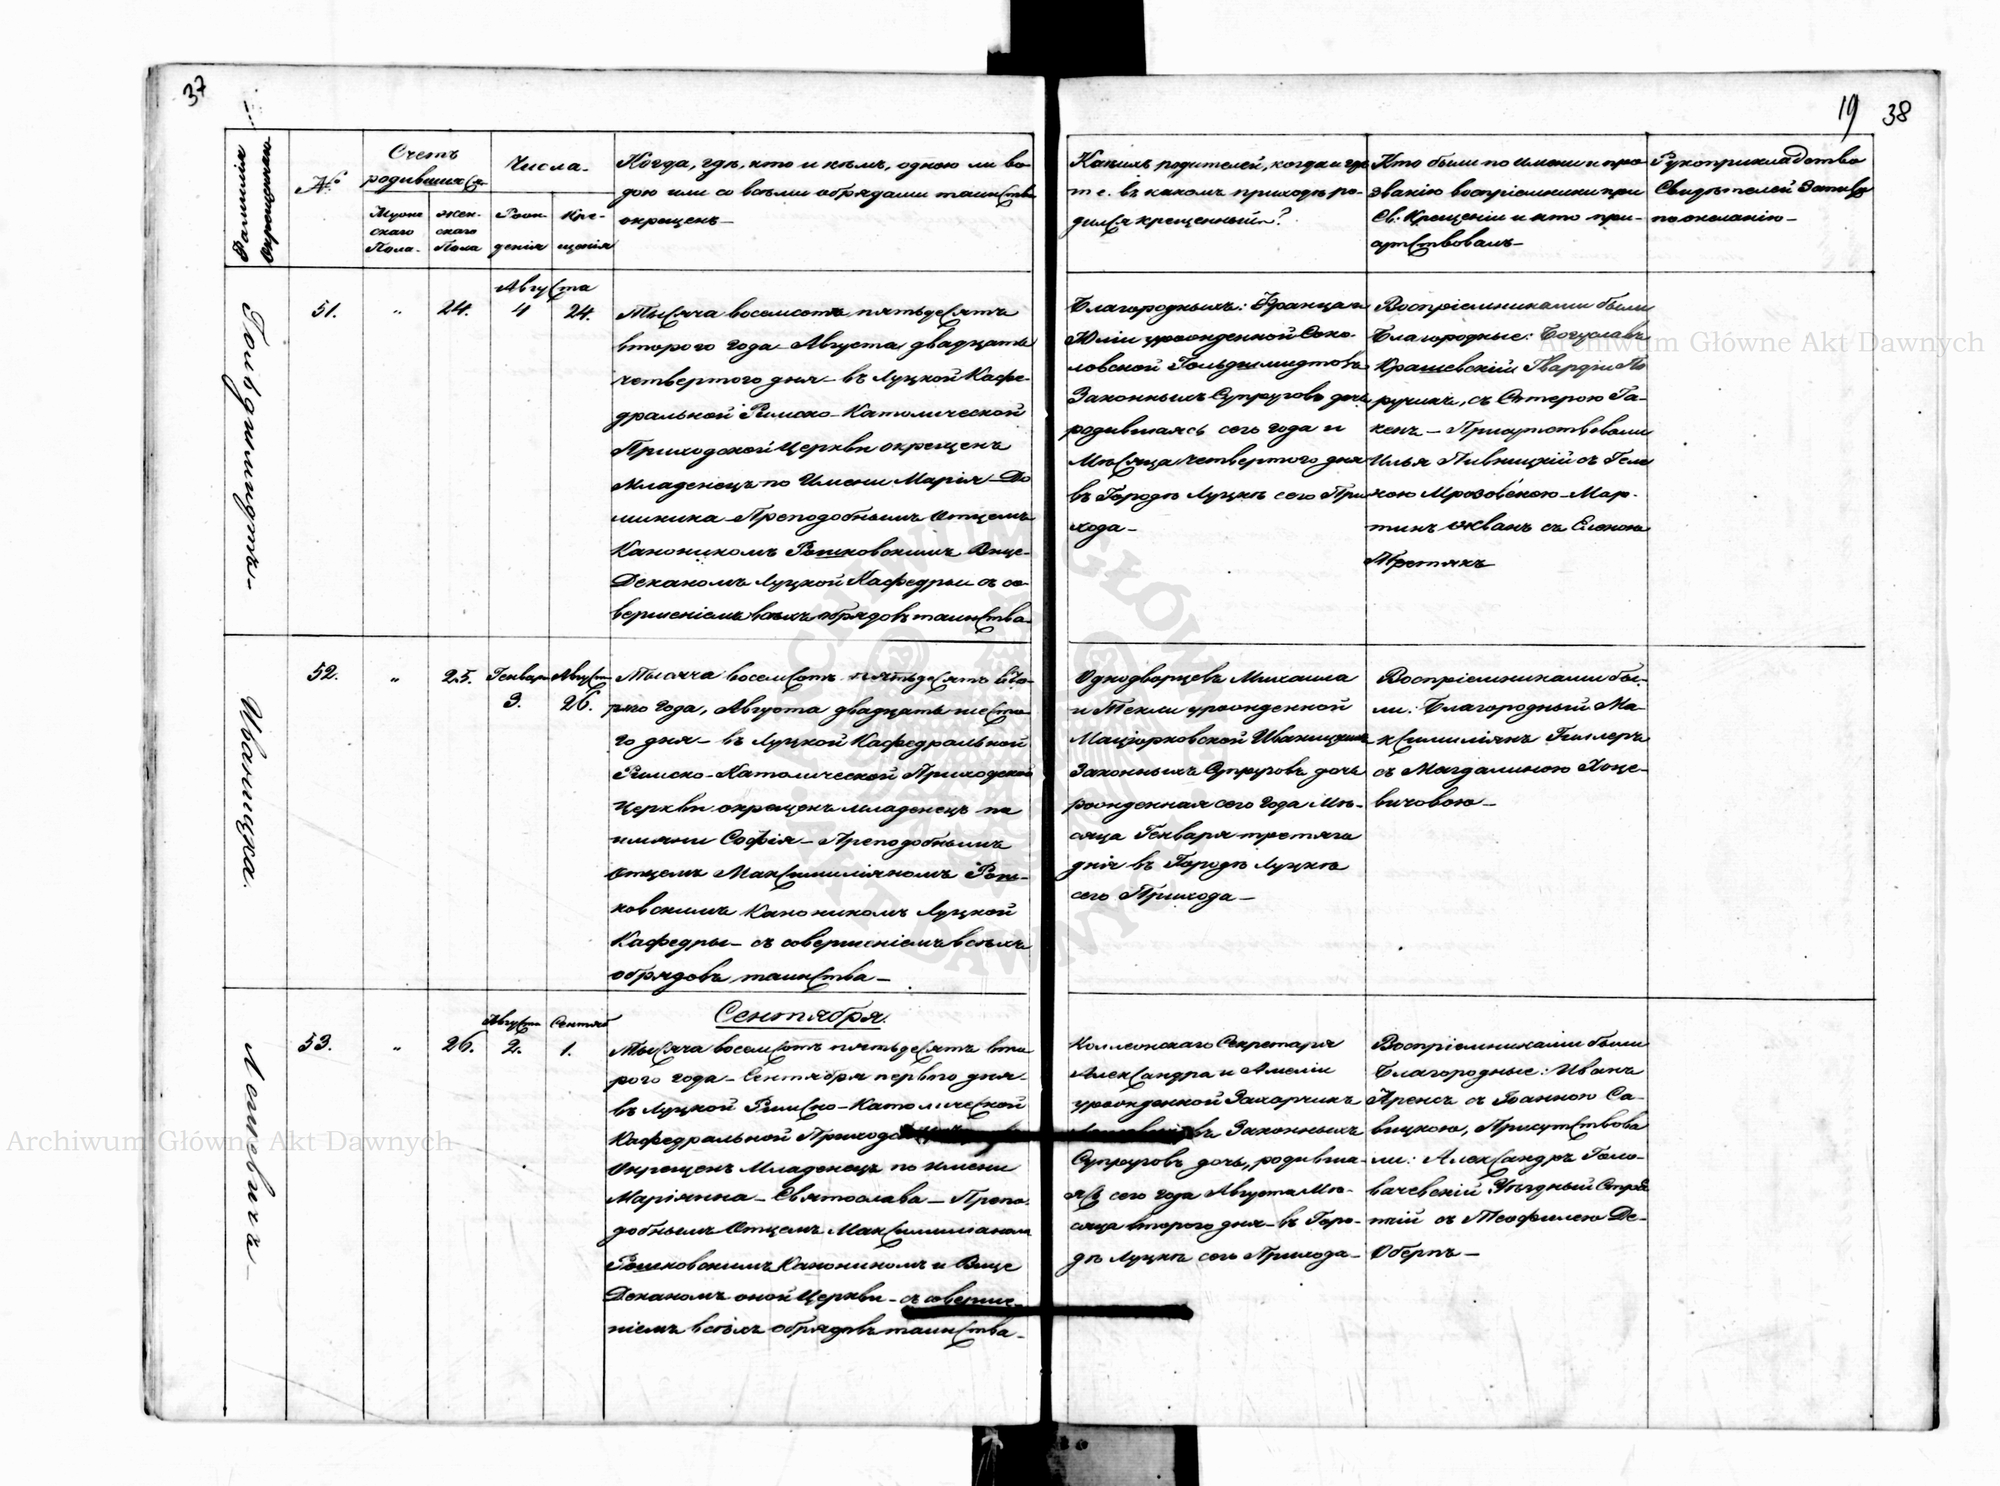 37
19 38
Фамилия окрещеннаго
№
Счетъ родившихся
Мужескаго Пола
женскаго Пола
Числа
Рождения
Крещенія
Когда, гдѣ, кто и кѣмъ, одною ли во-
дою или со всѣми обрядами таинства
окрещенъ
Какихъ родителей, когда и гдѣ
т. е. въ какомъ приходѣ ро-
дился крещенный?
Кто были по имени и про-
званію воспріемники при
Св. Крещеніи и кто при-
сутствовалъ
Рукоприкладство
Свидѣтелей
по желанію
Гольдшмидтъ
51. " 24.
Августа
4 24.
Тысяча восемсотъ пятьдесятъ
второго года Августа двадцать
четвертого дня въ Луцкой Кафе-
дральной Римско-Католической
Приходской Церкви окрещенъ
Младенецъ по Имени Марія До
миника Преподобнымъ Отцемъ
Каноникомъ Рошковскимъ Вице-
Деканомъ Луцкой Кафедры съ со-
вершеніемъ всѣхъ обрядовъ таинства
Благородныхъ: Франца и
Юліи урожденной Соко-
ловской Гольдшмидтовъ
Законныхъ Супруговъ дочь
родившаясь сего года и
Мѣсяца четвертого дня
въ Городѣ Луцкѣ сего При
хода
Воспріемниками были
Благородные: Богуславъ
Крашевскій Гвардіи По
ручикъ, съ
Присутствовали
Илья Пивницкій съ
Мрозовскою Мар-
тинъ Жванъ съ Еленою
Третякъ
Иваницка
52. " 25.
Генваря 3.
Августа 26.
Тысяча восемсотъ пятьдесятъ вто-
рого года, Августа двадцать шесто-
го дня въ Луцкой Кафедральной
Римско-Католической Приходской
Церкви окрещенъ младенецъ по
имяни Софія Преподобнымъ
Отцемъ Максимиліяномъ Рош-
ковскимъ Каноникомъ Луцкой
Кафедры съ совершеніемъ всѣхъ
обрядовъ таинства
Однодворцевъ Михаила
и Текли урожденной
Мацюрковской Иваницкихъ
Законныхъ Супруговъ дочь
рожденная сего года Мѣ-
сяца Генваря третяго
дня въ Городѣ Луцкѣ
сего Прихода
Воспріемниками бы-
ли: Благородный Ма-
ксимиліянъ Гешлеръ
съ Магдалиною Хоце-
вичовою
53. " 26.
Августа 2.
Сентяб 1.
Сентября.
Тысяча восемсотъ пятьдесятъ вто
рого года Сентября первго дня
въ Луцкой Римско-Католической
Кафедральной Приходской
Окрещенъ Младенецъ по имени
Маріянна Святослава Препо-
добнымъ Отцемъ Максимиліаномъ
Рошковскимъ Каноникомъ и Вице
Деканомъ оной Церкви съ соверше-
ніемъ всѣхъ обрядовъ таинства
Коллежскаго Секретаря
Александра и Амеліи
урожденной Захарчикъ
Законныхъ
Супруговъ дочь, родивша-
яся сего года Августа Мѣ-
сяца второго дня въ Горо-
дѣ Луцкѣ сего Прихода
Воспріемниками были
Благородные: Иванъ
Аренсъ съ Іоанною Са-
вицкою, Присутствова
ли: Александръ Голо-
вачевскій Уѣздный Стряп
чій съ Теофилею Де-
Оберъ
Archiwum Główne Akt Dawnych
Archiwum Główne Akt Dawnych
ARCHIWUM GŁÓWNE AKT DAWNYCH